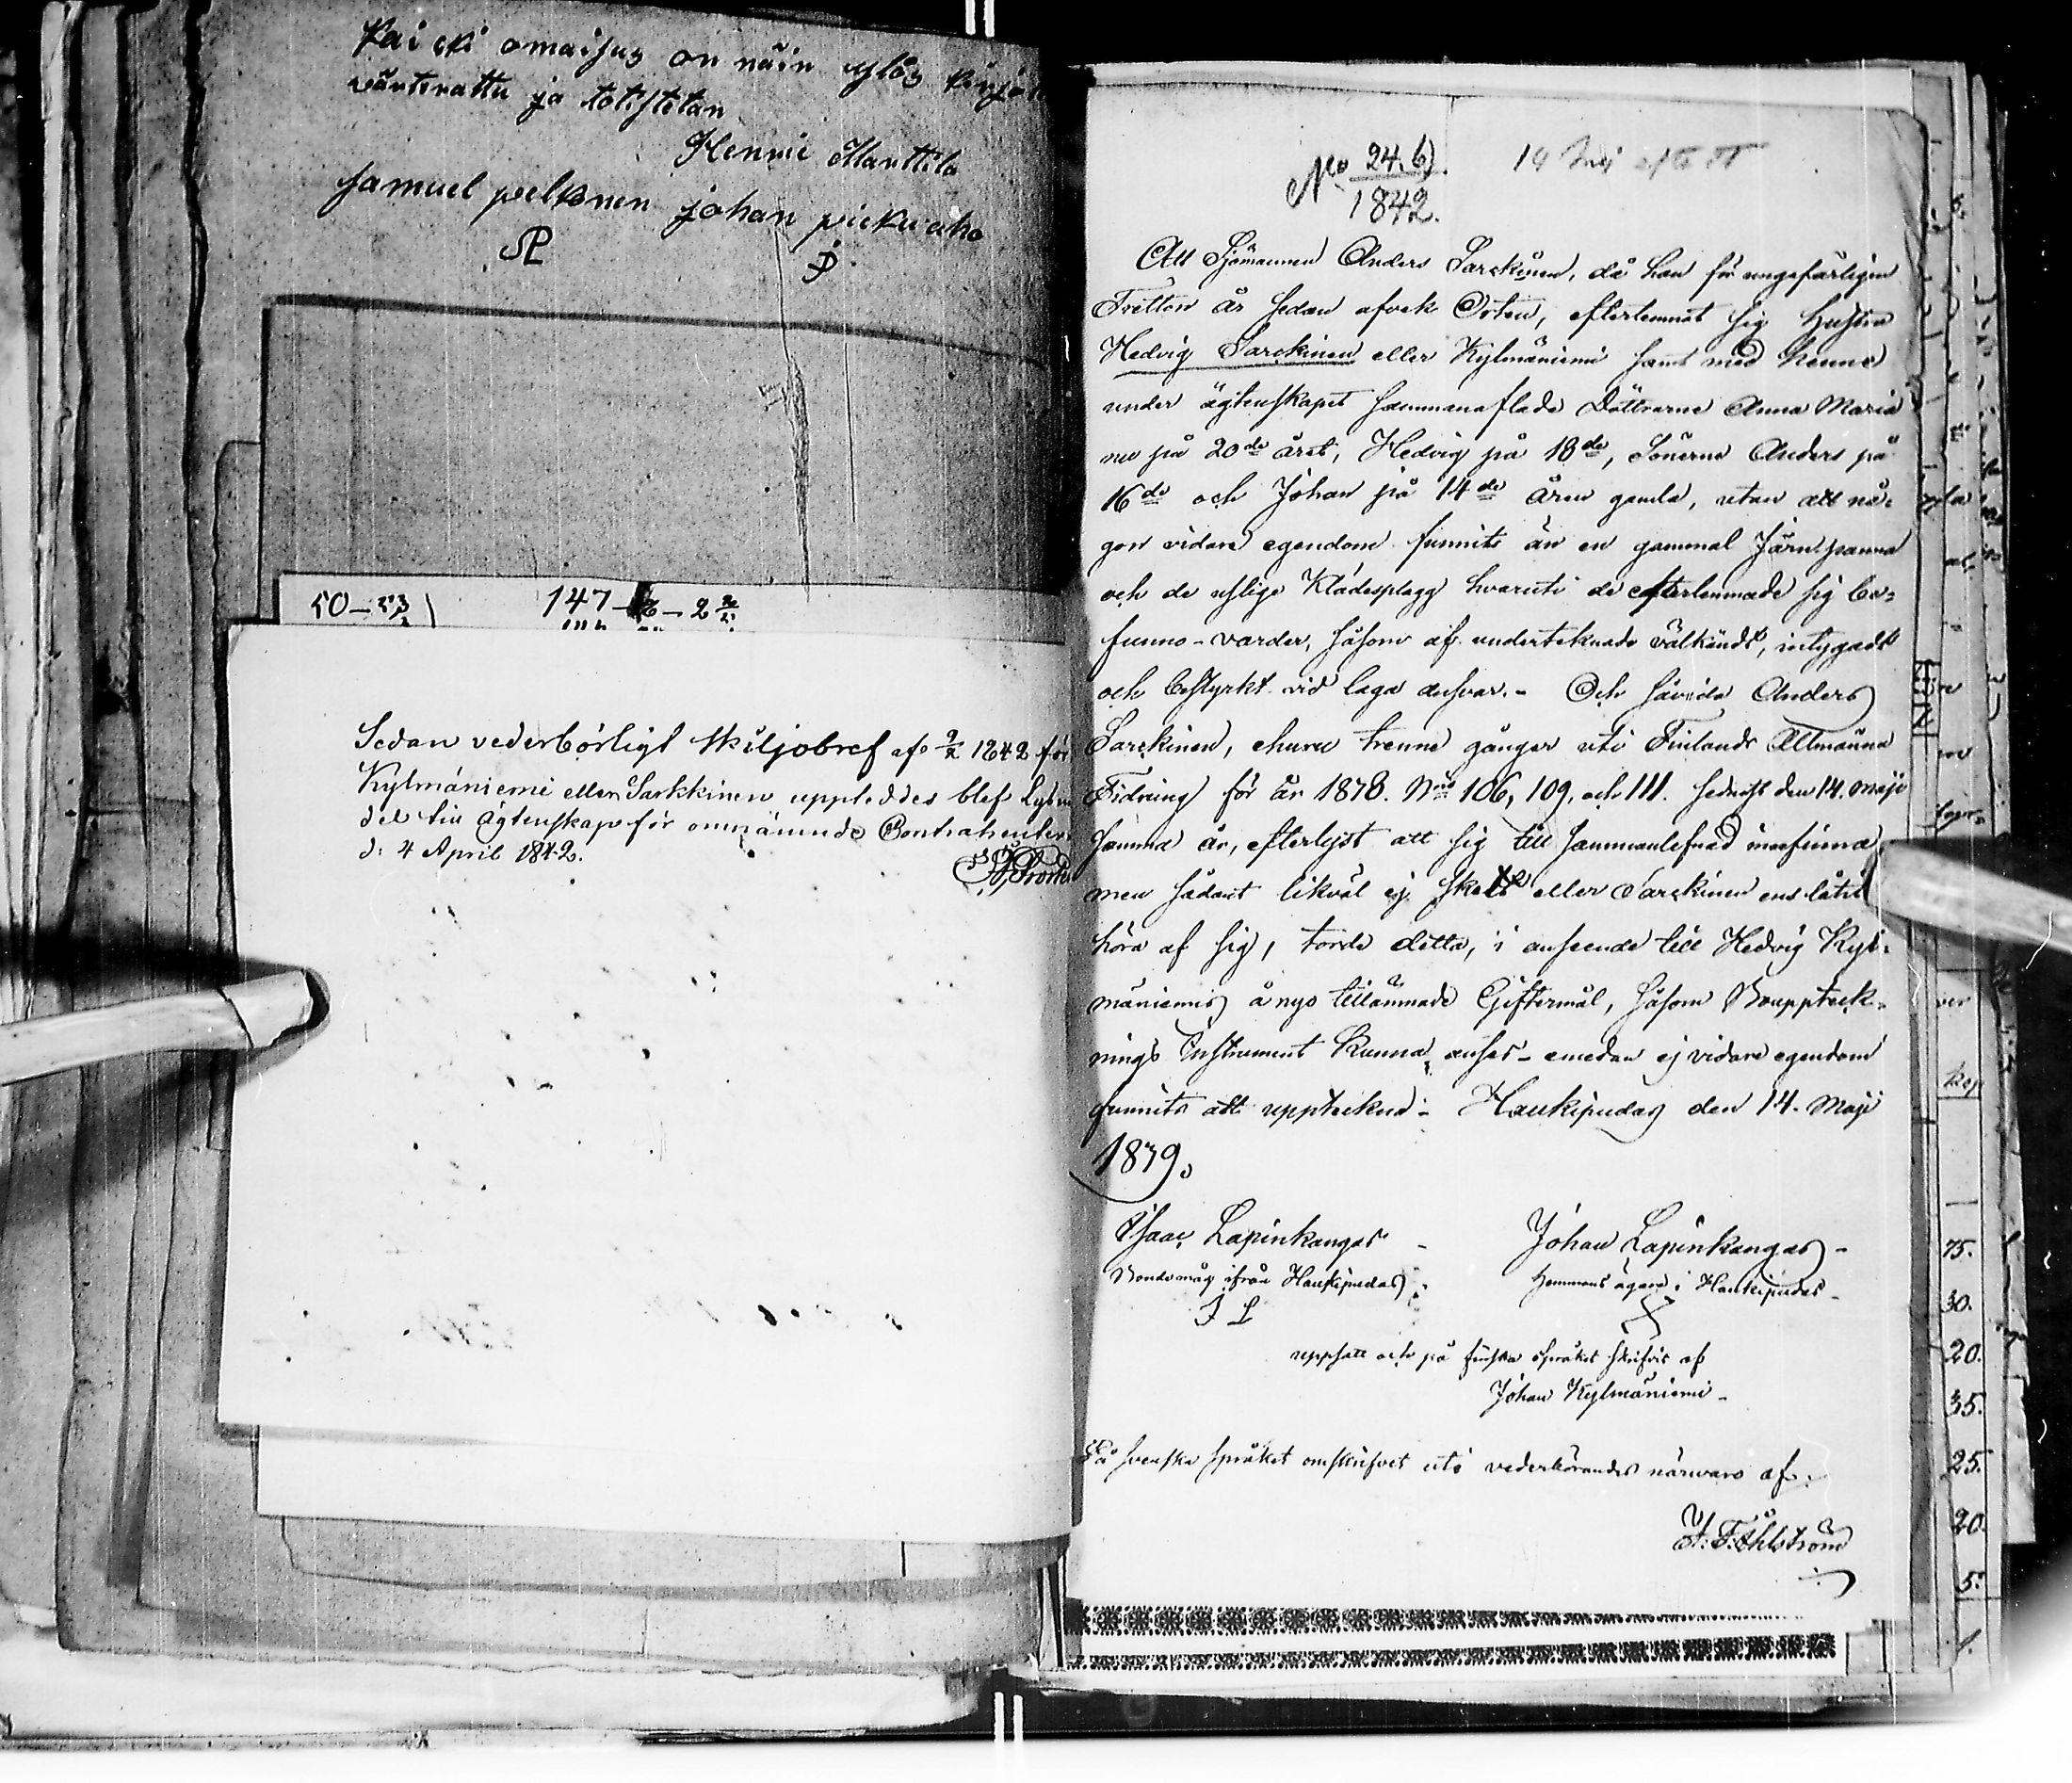 Kai cki omaisus on näin ylös kirjoi
värterattu ja totistetan
Hennric Manttila
Samuel pelkonen johan pickuaho
SP JP
50 — 147 — 2
Sedan vederbörligt Skiljobref af 9/2 1842 för
Kylmäniemi eller Sarkkinen uppteddes blef Lysni
del till ägtenskap för omnämnde Contrahenter
d: 4 April 1842.
No 24. b)
1842.
Att Sjömannen Anders Sarckinen, då han för ungefärligen
Tretton år sedan afvek Orten, efterlemnat sig hustru
Hedvig Sarckinen eller Kylmäniemi samt med henne
under ägtenskapet sammanaflade Döttrarne Anna Maria
nu på 20de året, Hedvig på 18de, Sönerne Anders på
16de och Johan på 14de åren gamla, utan att nå-
gon vidare egendom funnits än en gammal Järn panna
och de uslige Klädesplagg hvaruti de efterlemnade sig be-
funno - varder, såsom af undertecknade välkändt, intygadt
och bestyrkt vid laga ansvar. - Och såvida Anders
Sarckinen, ehuru trenne gånger uti Finlands Allmänna
Tidning för år 1878. Nris 106, 109, och 111. sednast den 14. Maji
samma år, efterlyst att sig till sammanlefnad innfinna
men sådant likväl ej skett eller Sarckinen ens låtit
höra af sig, torde detta, i anseende till Hedvig Kyl-
mäniemis å nyo tillämnade Giftermål, såsom Bouppteck-
nings Instrument kunna anses - emedan ej vidare egendom
funnits att uppteckna - Haukipudas den 14. Maji
1879.
Isaac Lapinkangas - Johan Lapinkangas -
Bondemåg ifrån Haukipudas. Hemmans ägare i Haukipudas -
I L
uppsatt och på finska språket skrifvit af
Johan Kylmäniemi -
På svenska språket omskrifvet uti vederbörandes närvaro af:
J: F: Åhlström